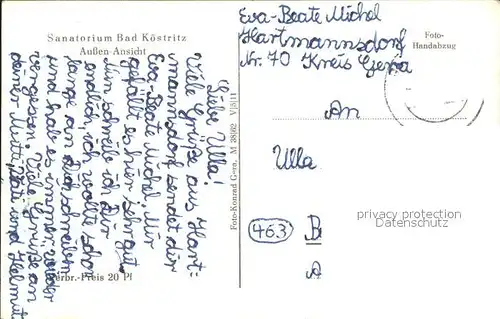 Sanatorium Bad Köstritz
Außen-Ansicht
Eva-Beate Michel
Hartmannsdorf
Nr. 70 Kreis Gera
Foto-
Handabzug
Liebe Ulla!
Viele Grüße aus Hart=
mannsdorf sendet dir
Eva-Beate Michel. Mir
gefällt es hier sehr gut.
Nun schreibe ich Dir
endlich, ich wollte schon
lange an Dich schreiben
und hab es immer wieder
vergessen. Viele Grüße an
deiner Mutti, Vati und Helmut
Foto-Konrad Gern. M 38/62 V/5/11
An
Ulla
463
B
A
privacy protection
Datenschutz
Verbr.-Preis 20 Pf